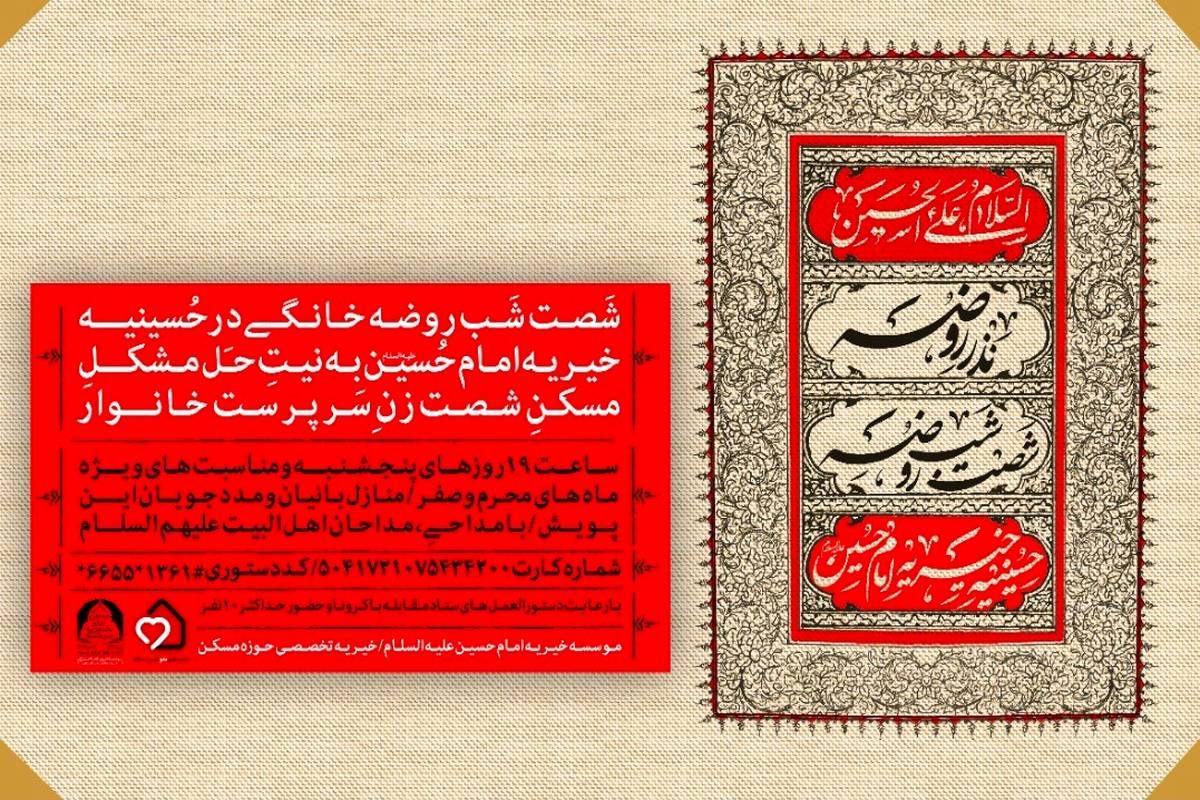 السلام علی الحسین
نذر روضه
شصت شب روضه
حسینیه خیریه امام حسین
شَصت شَب روضه خانگی در حُسینیه
خیریه امام حُسین علیه‌السلام به نیتِ حَل مشکلِ
مسکنِ شصت زنِ سَرپرست خانوار
ساعت ۱۹ روزهای پنجشنبه و مناسبت های ویژه
ماه های محرم و صفر / منازل بانیان و مددجویان این
پویش / با مداحیِ، مداحان اهل البیت علیهم السلام
شماره کارت ۵۰۴۱۷۲۱۰۷۵۴۳۴۲۰۰ / کد دستوری #۱۳۶۱*۶۶۵۵*
با رعایت دستورالعمل های ستاد مقابله با کرونا و حضور حداکثر ۱۰ نفر
موسسه خیریه امام حسین علیه السلام / خیریه تخصصی حوزه مسکن